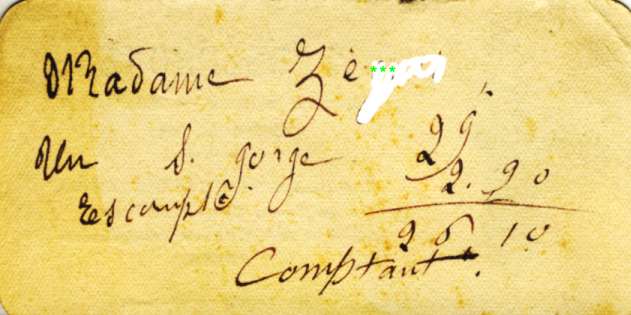 Madame Zè***
Un S. gorge 29,
Escompte 2.90
26.10
Comptant.